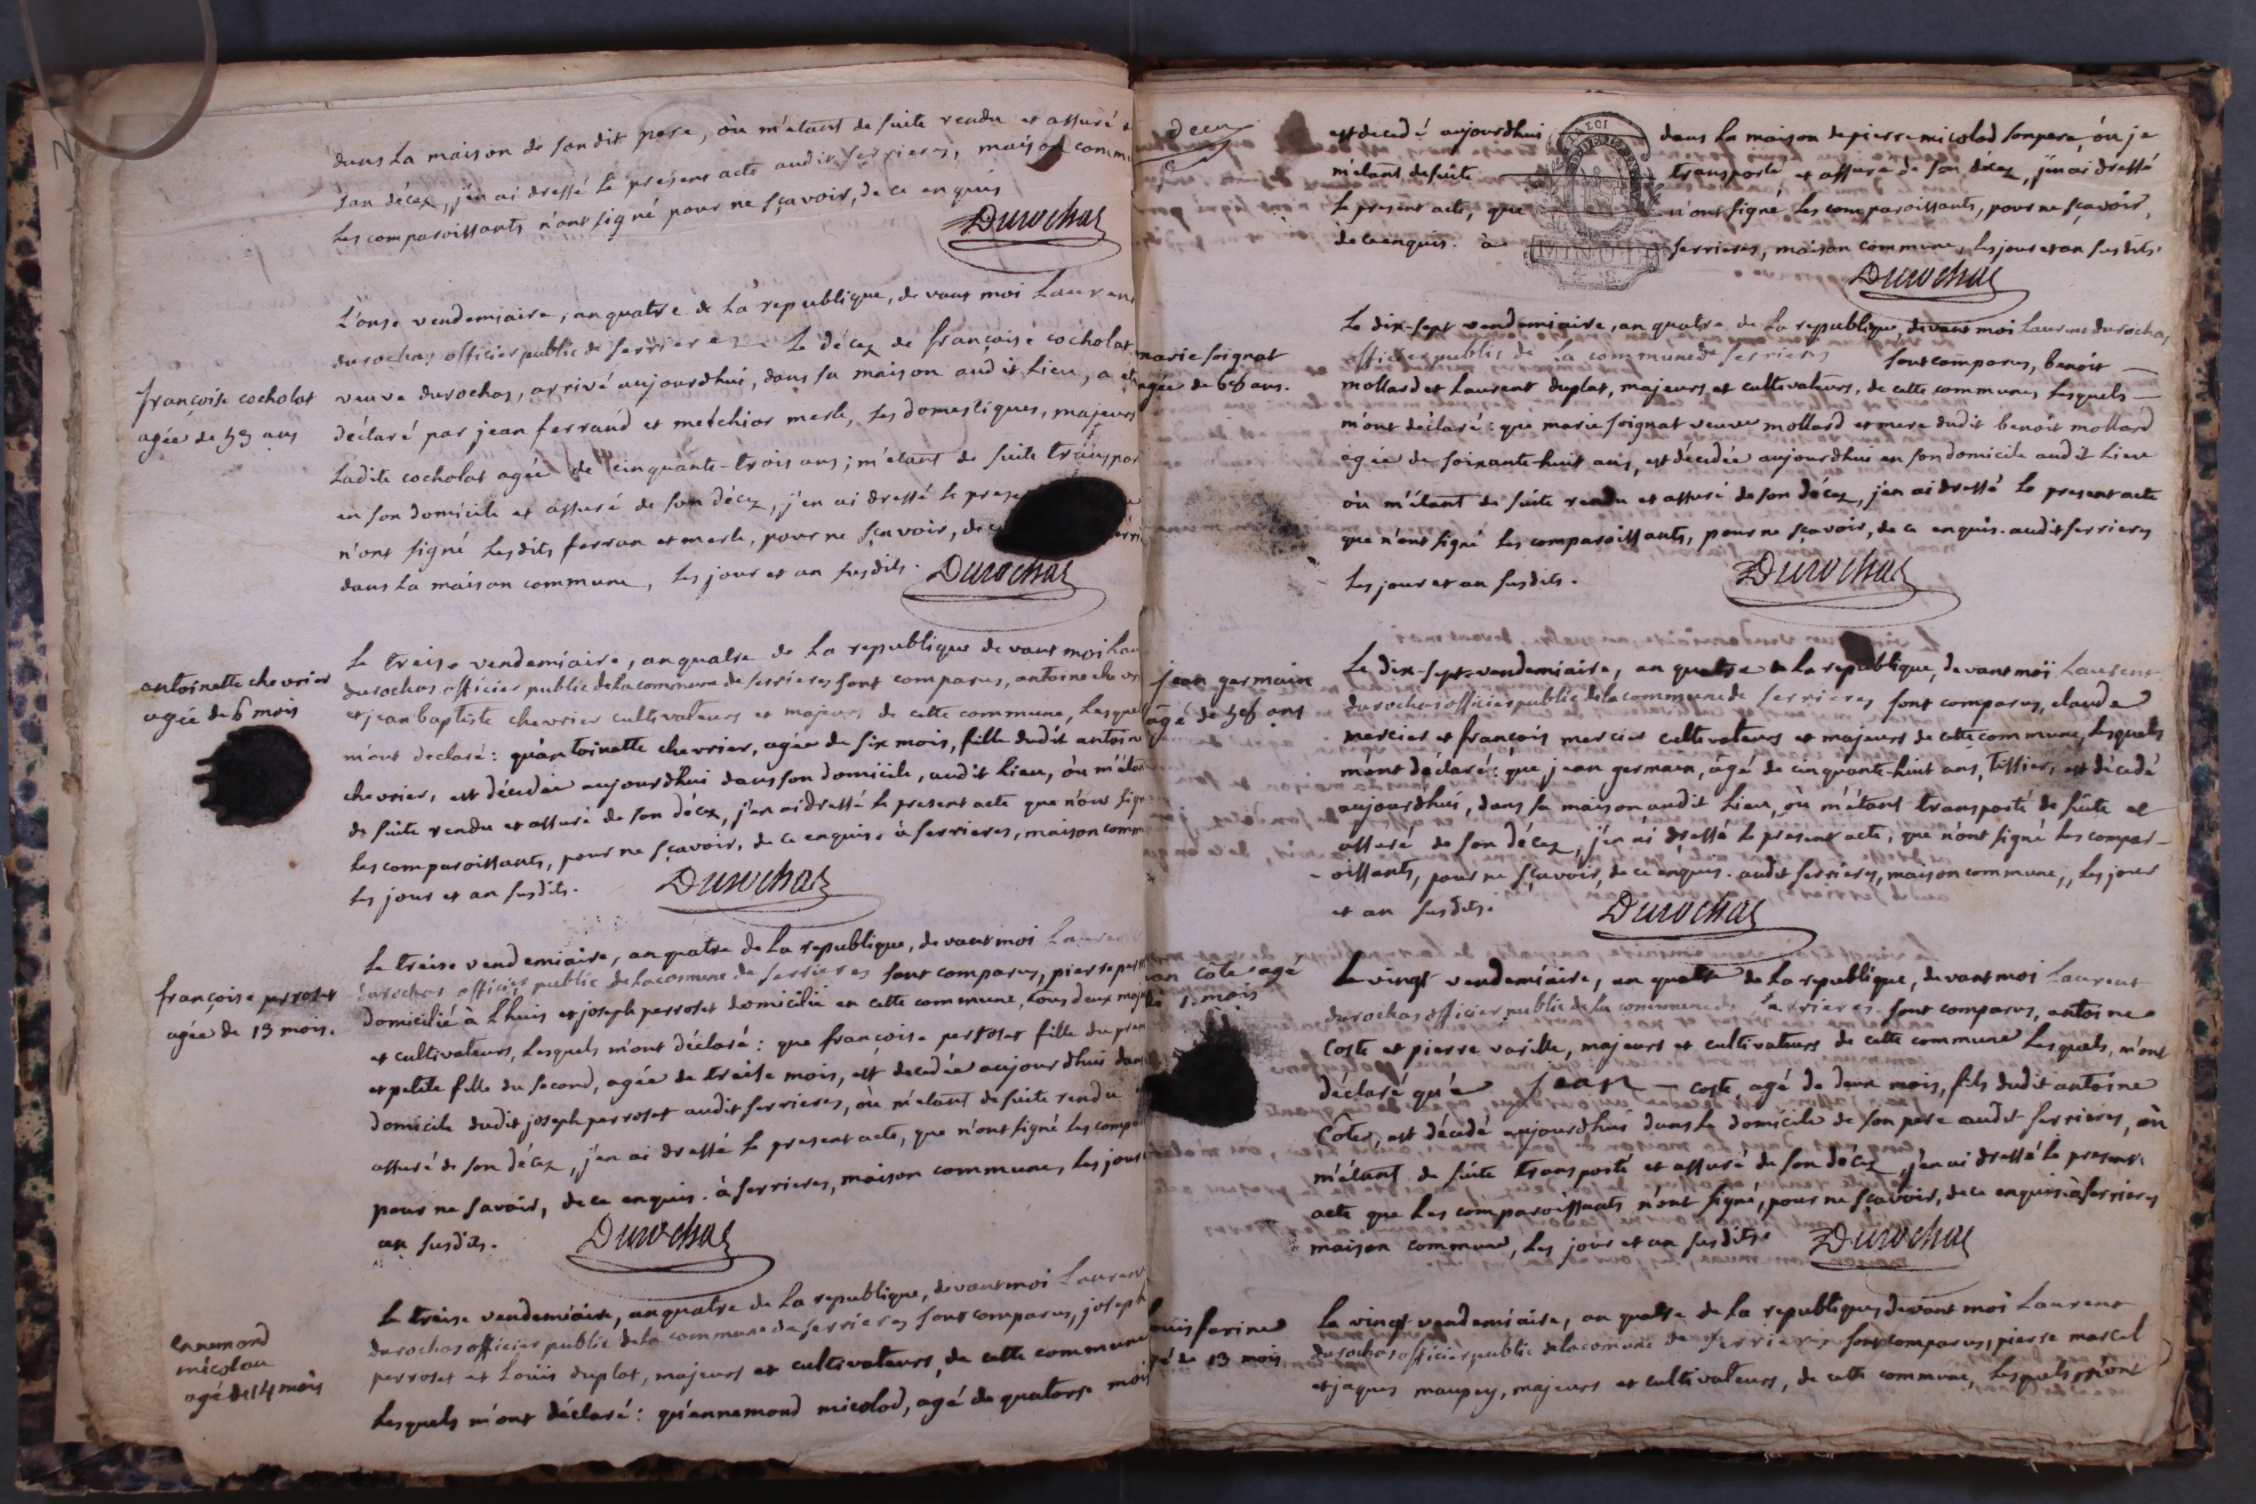 dans la maison de son dit pere, où m'étant de suite rendu et assuré
son décex, j'en ai dressé le present acte audit serrieres, maison comm
les comparoissants n'ont signé pour ne sçavoir, de ce enquis
Durochas
L'onse vendemiaire, an quatre de la republique, de vant moi Laurent
durochas officier public de serriere le décex de françoise cocholat
françoise cocholat
agée de 53 ans
veuve durochas, arrivé aujourdhui, dans sa maison audit lieu, a été
déclaré par jean ferrand et melchior merle, ses domestiques, majeurs
Ladite cocholat agée de cinquante-trois ans; m'étant de suite transpor
en son domicile et assuré de son décex, j'en ai dressé le prese
n'ont signé lesdits ferran et merle, pour ne sçavoir, de c
dans la maison commune, les jour et an susdits.
Durochas
antoinette chevrier
agée de 6 mois
Le treise vendemiaire, an quatre de la republique de vant moi Lau
durochas officier public de la commune de serrieres sont comparus, antoine chevri
et jean baptiste chevrier cultivateurs et majeurs de cette commune, lesquel
m'ont declaré: qu'antoinette chevrier, agée de six mois, fille dudit antoin
chevrier, est décedée aujourd'hui dans son domicile, audit lieu, où m'étan
de suite rendu et assuré de son décex, j'en ai dressé le present acte que n'ont sign
les comparoissants, pour ne sçavoir, de ce enquis. à serrieres, maison comm
les jour et an susdits.
Durochas
françoise perroset
agée de 13 mois.
Le treise vendemiaire, an quatre de la republique, de vant moi Laurent
durochas officier public de la comune de serrieres sont comparus, pierre perr
domicilié à Lhuis et joseph perroset domicilié en cette commune, tous deux maj
et cultivateurs, lesquels m'ont déclaré: que françoise perroset fille du prem
et petite fille du second, agée de treise mois, est decedée aujourdhui dans
domicile dudit joseph perroset audit serrieres, où m'étant de suite rendu
assuré de son décex, j'en ai dressé le present acte, que n'ont signé les compa
pour ne savoir, de ce enquis. à serrieres, maison commune, les jour
an susdits.
Durochas
ennemond
micolau
agé de 14 mois
Le treise vendemiaire, an quatre de la republique, de vant moi Laurent
durochas officier public de la commune de serrieres sont comparus, joseph
perroset et Louis duplat, majeurs et cultivateurs, de cette commune
lesquels m'ont déclaré: qu'ennemond micolod, agé de quatorse mois
est decedé aujourdhui dans la maison de pierre micolod son pere, où je
m'étant de suite transporté et assuré de son décex, j'en ai dressé
le present acte, que n'ont signé les comparoissants, pour ne sçavoir,
de ce enquis. à serrieres, maison commune, les jour et an susdits.
LA LOI
MINUTE
Durochas
marie soignat
agée de 68 ans.
Le dix-sept vendemiaire, an quatre de la republique, devant moi Laurent durochas
officier public de la commune de serrieres sont comparus, benoit
mollard et Laurent duplat, majeurs et cultivateurs, de cette commune, lesquels
m'ont déclaré: que marie soignat veuve mollard et mere dudit benoit mollard
agée de soixante-huit ans, est décedée aujourdhui en son domicile audit lieu
où m'étant de suite rendu et assuré de son décex, j'en ai dressé le present acte
que n'ont signé les comparoissants, pour ne sçavoir, de ce enquis. audit serrieres
les jour et an susdits.
Durochas
jean germain
âgé de 58 ans
Le dix-sept vendemiaire, an quatre de la republique, devant moi Laurent
durochas officier public de la commune de serrieres sont comparus, claude
mercier et françois mercier cultivateurs et majeurs de cette commune, lesquels
m'ont déclaré: que jean germain, âgé de cinquante-huit ans, tissier, est décedé
aujourdhui, dans sa maison audit lieu, où m'étant transporté de suite et
assuré de son décex, j'en ai dressé le present acte, que n'ont signé les compar-
-oissants, pour ne sçavoir, de ce enquis. audit serrieres, maison commune, les jour
et an susdits.
Durochas
an cote agé
2 mois
Le vingt vendemiaire, an quatre de la republique, devant moi Laurent
durochas officier public de la commune de serrieres sont comparus, antoine
Coste et pierre vasille, majeurs et cultivateurs de cette commune lesquels, m'ont
déclaré que jean coste, agé de deux mois, fils dudit antoine
Côte, est décédé aujourdhui dans le domicile de son pere audit serrieres, où
m'étant de suite transporté et assuré de son décex, j'en ai dressé le present
acte que les comparoissants n'ont signé, pour ne sçavoir, de ce enquis. à serrieres
maison commune, les jour et an susdits.
Durochas
ouis farine
gé de 13 mois
Le vingt vendemiaire, an quatre de la republique, devant moi Laurent
durochas officier public de la comune de serrieres sont comparus, pierre marcel
et jaques maupey, majeurs et cultivateurs, de cette commune, lesquels m'ont